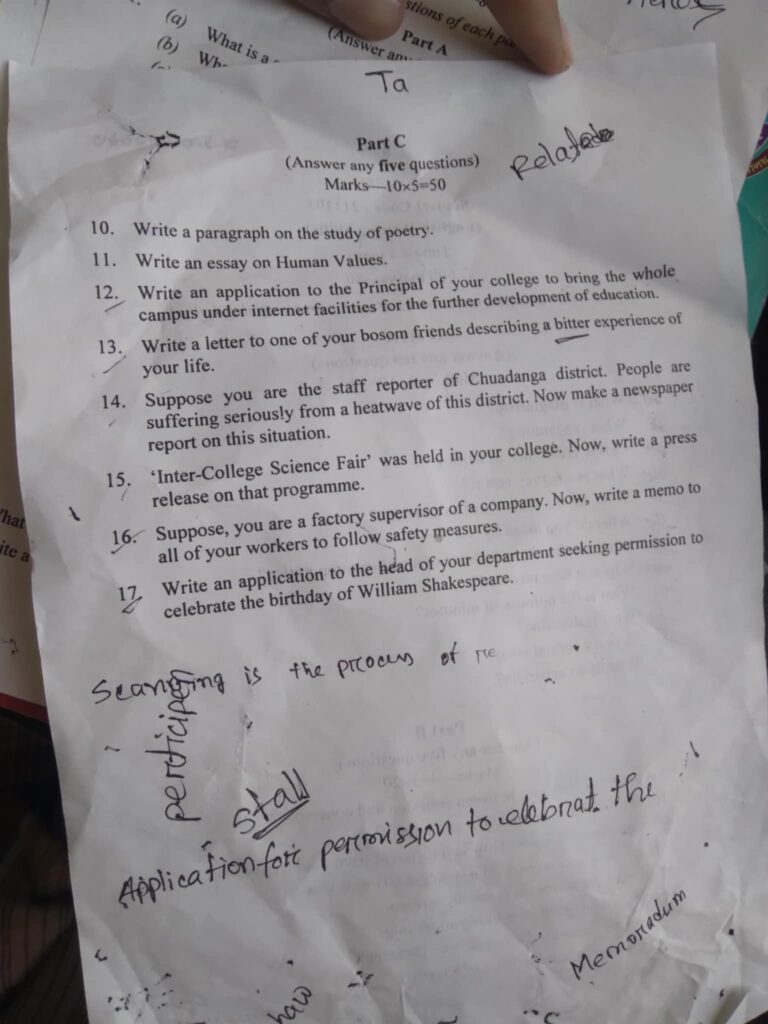 (a)
(b)
What is a
Wh
(Answer any
Part A
stions of each pa
Ta
Part C
(Answer any five questions)
Marks—10×5=50
Relate
10. Write a paragraph on the study of poetry.
11. Write an essay on Human Values.
12. Write an application to the Principal of your college to bring the whole
campus under internet facilities for the further development of education.
13. Write a letter to one of your bosom friends describing a bitter experience of
your life.
14. Suppose you are the staff reporter of Chuadanga district. People are
suffering seriously from a heatwave of this district. Now make a newspaper
report on this situation.
15. ‘Inter-College Science Fair’ was held in your college. Now, write a press
release on that programme.
16. Suppose, you are a factory supervisor of a company. Now, write a memo to
all of your workers to follow safety measures.
17. Write an application to the head of your department seeking permission to
celebrate the birthday of William Shakespeare.
is the process of re
Stall
Application for permission to celebrat the
Memoradum
haw